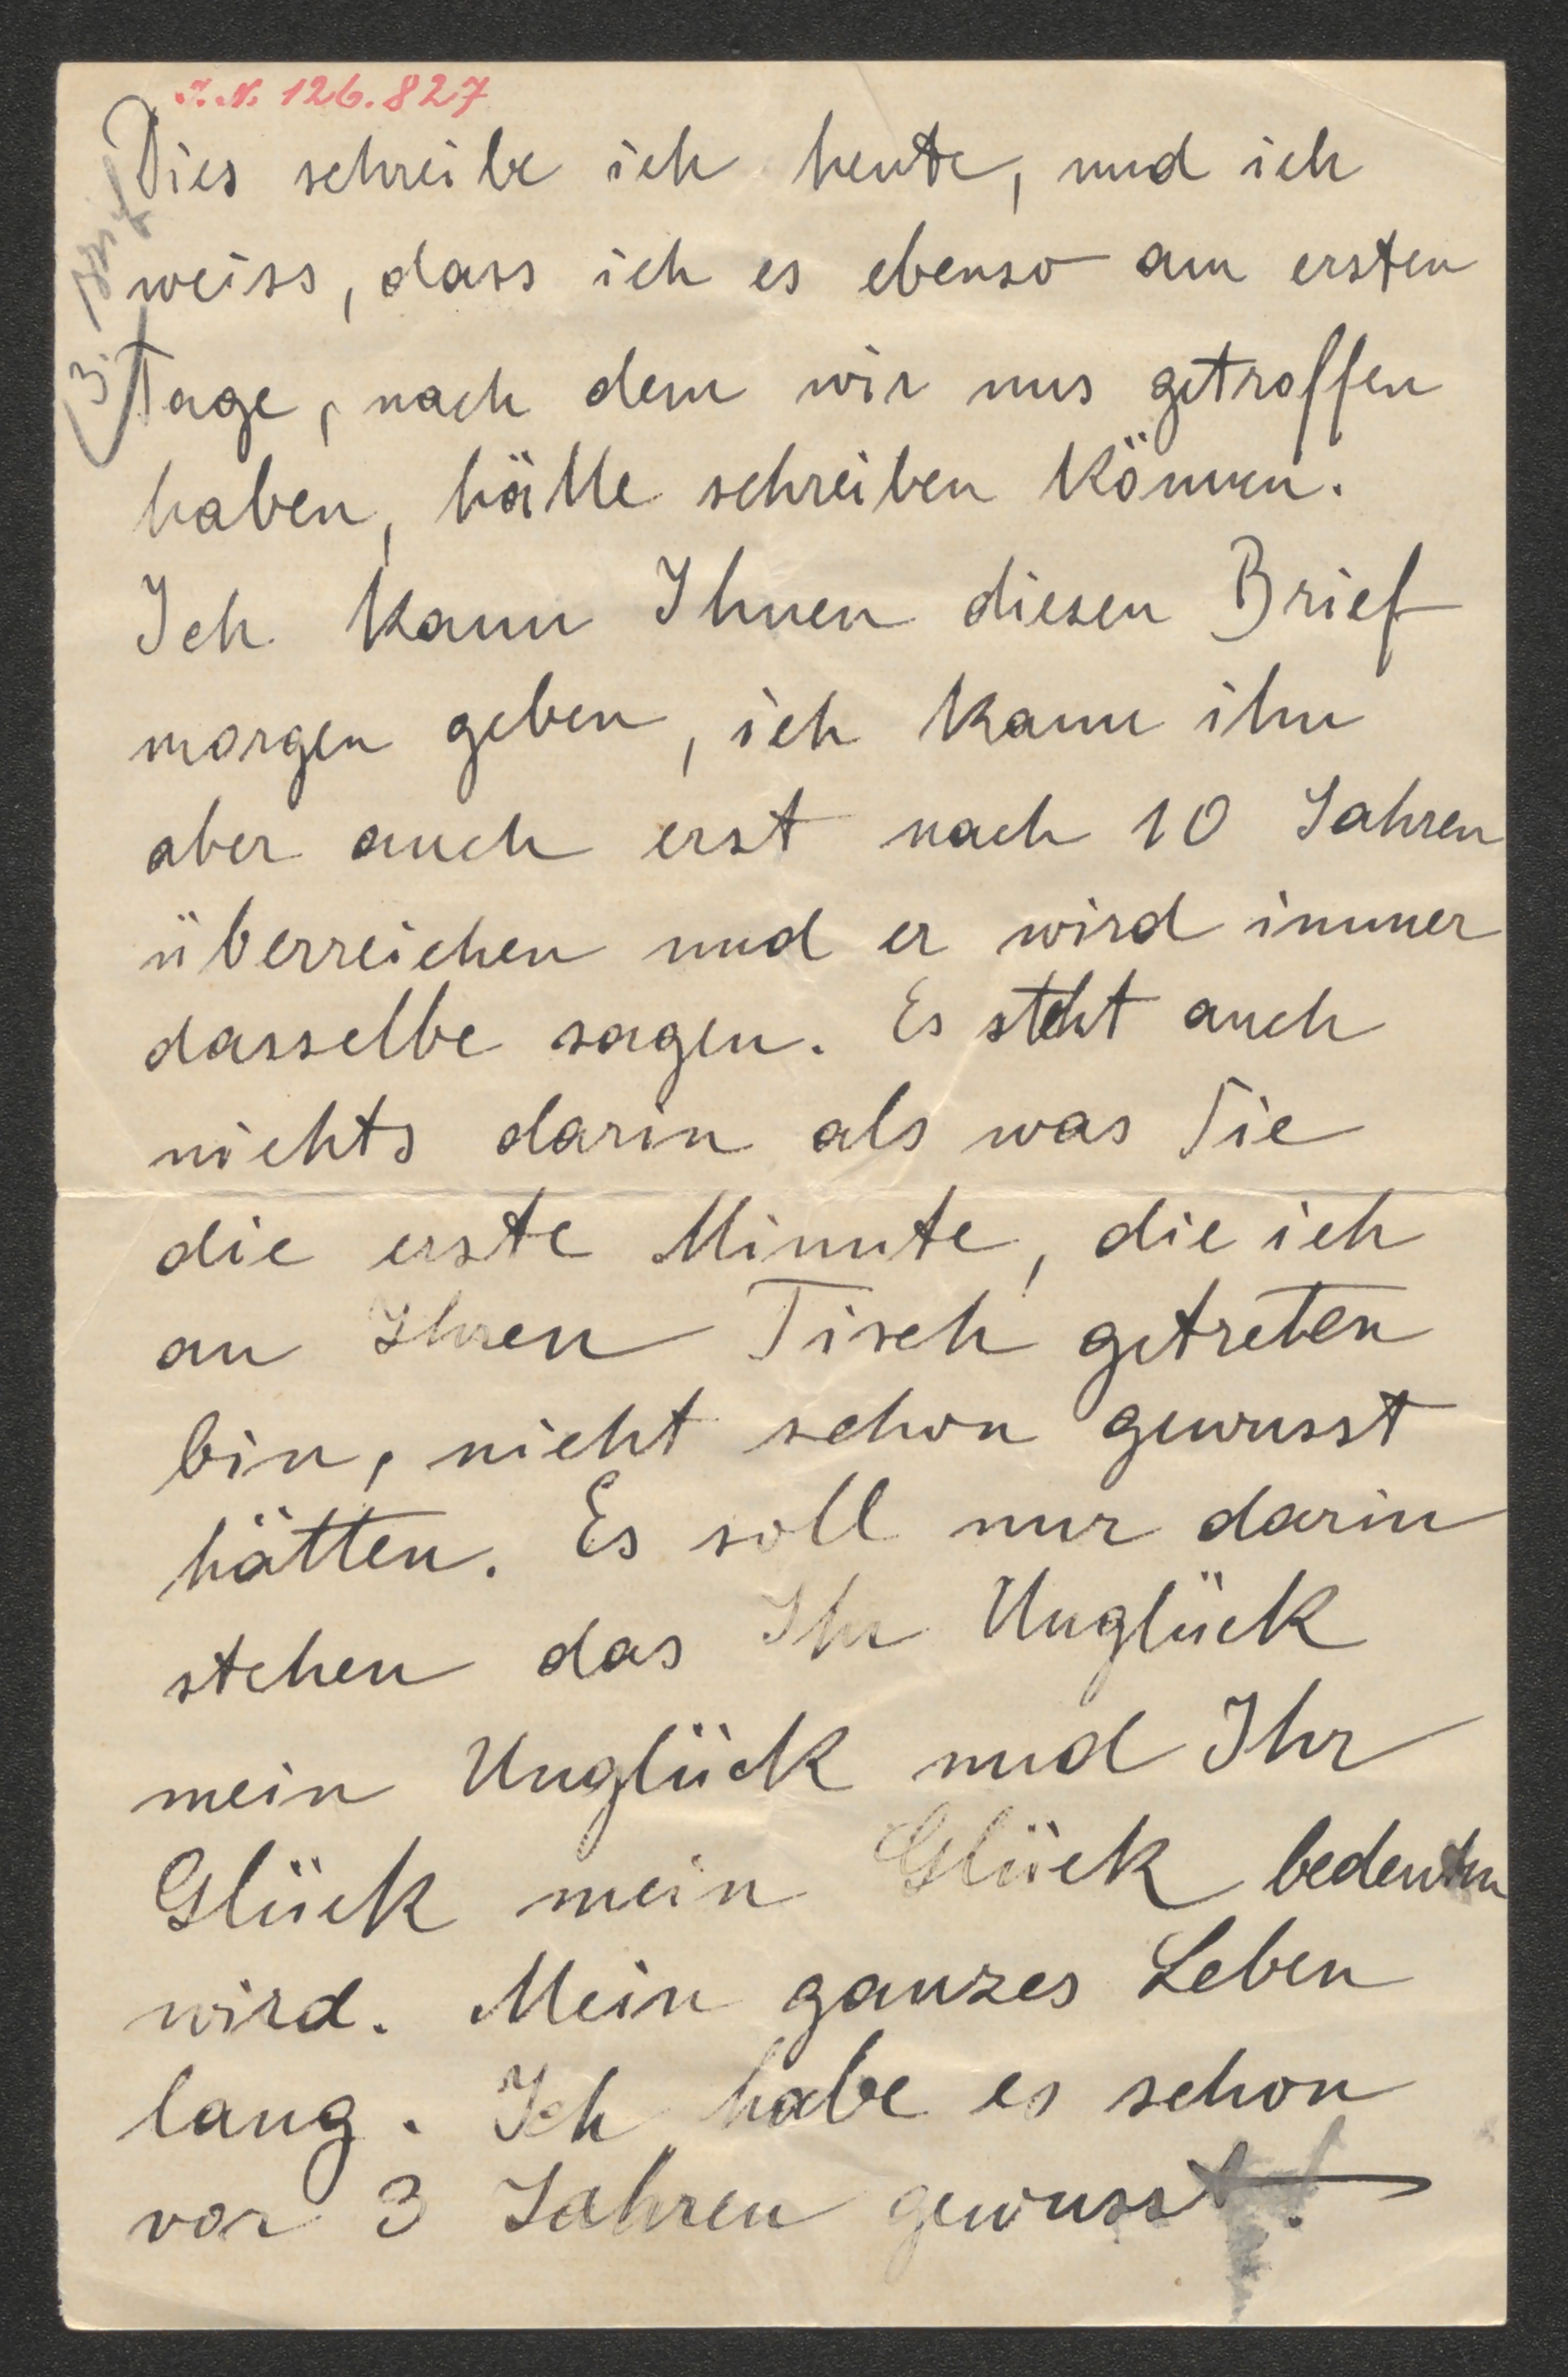 J.N. 126.827
3. Brief
Dies schreibe ich heute, und ich
weiss, dass ich es ebenso am ersten
Tage, nach dem wir uns getroffen
haben, hätte schreiben können.
Ich kann Ihnen diesen Brief
morgen geben, ich kann ihn
aber auch erst nach 10 Jahren
überreichen und er wird immer
dasselbe sagen. Es steht auch
nichts darin als was Sie
die erste Minute, die ich
an Ihren Tisch getreten
bin, nicht schon gewusst
hätten. Es soll nur darin
stehen das Ihr Unglück
mein Unglück und Ihr
Glück mein Glück bedeuten
wird. Mein ganzes Leben
lang. Ich habe es schon
vor 3 Jahren gewusst.